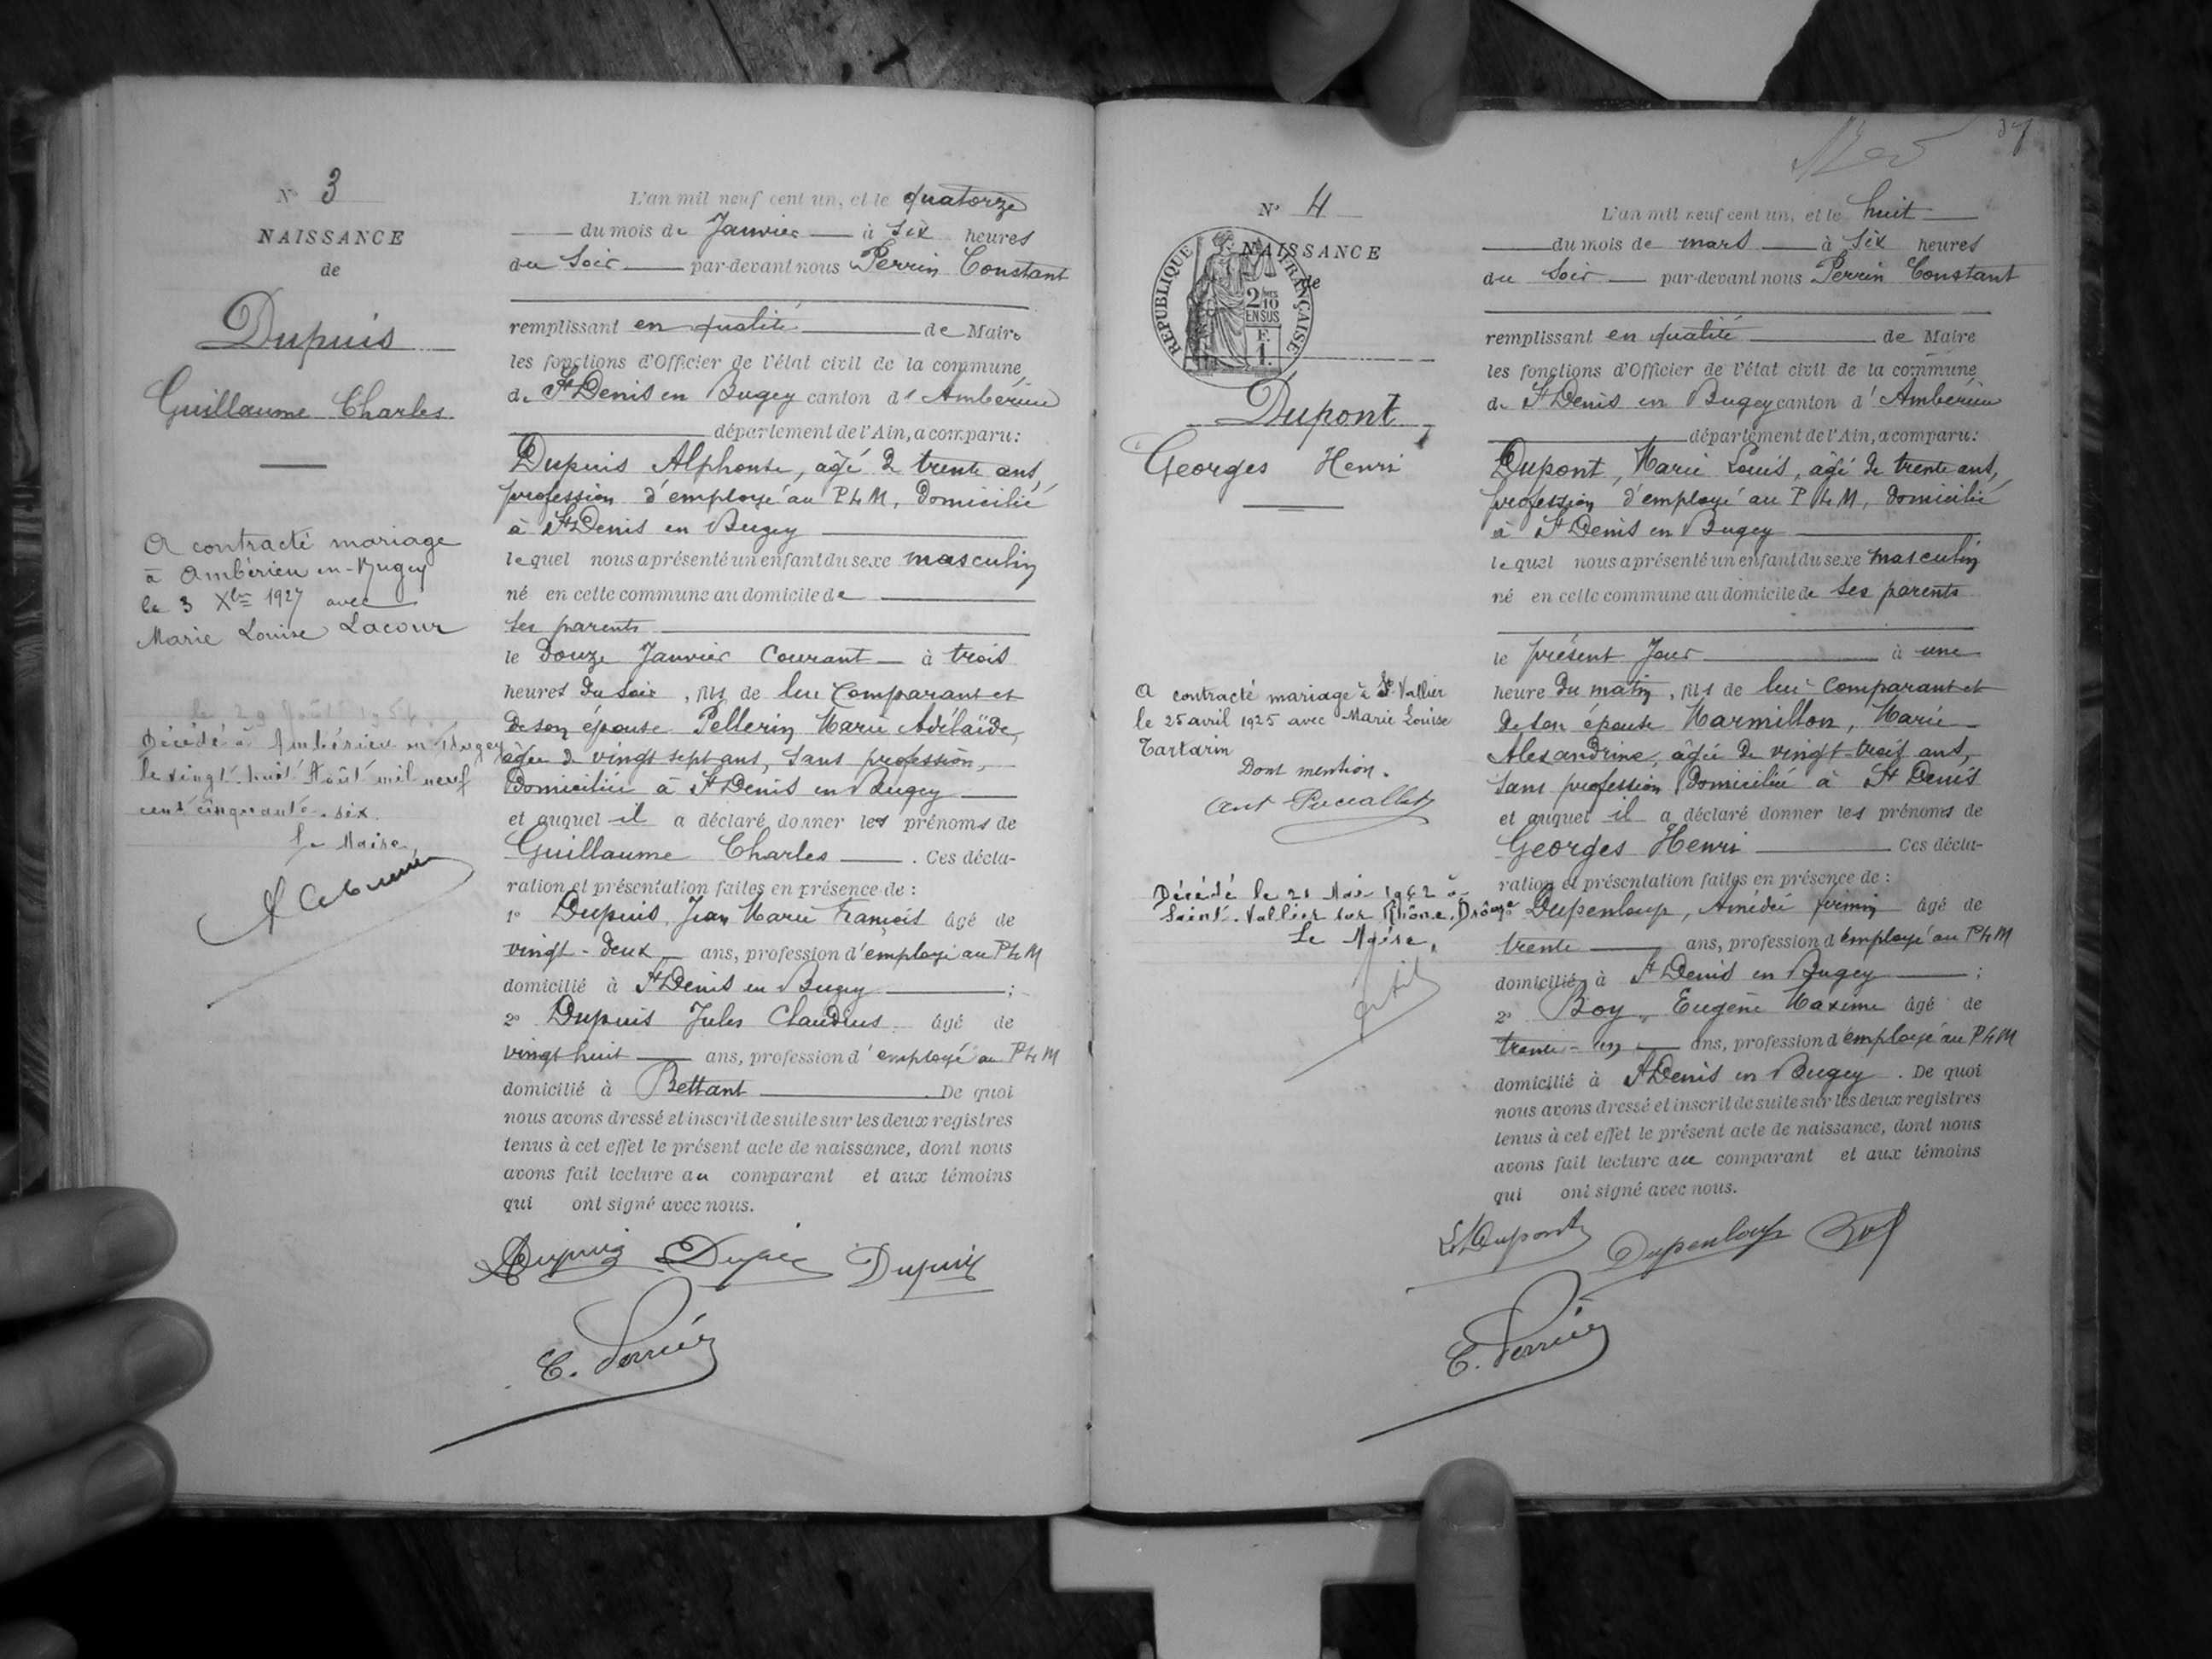 N° 3
NAISSANCE
de
Dupuis
Guillaume Charles
A contracté mariage
à Ambérieu en-Bugey
le 3 Xbre 1927 avec
Marie Louise Lacour
Décédé à Ambérieu en Bugey
le vingt-huit Août mil neuf
cent cinquante-six.
Le Maire,
L'an mil neuf cent un, et le quatorze
du mois de Janvier à six heures
du soir par-devant nous Perrin Constant
remplissant en qualité de Maire
les fonctions d'Officier de l'état civil de la commune
de St Denis en Bugey canton d'Ambérieu
département de l'Ain, a comparu:
Dupuis Alphonse, âgé de trente ans,
profession d'employé au PLM, domicilié
à St Denis en Bugey
lequel nous a présenté un enfant du sexe masculin
né en cette commune au domicile de
ses parents
le douze Janvier courant à trois
heures du soir, fils de lui comparant et
de son épouse Pellerin Marie Adélaïde,
âgée de vingt sept ans, sans profession,
domiciliée à St Denis en Bugey
et auquel il a déclaré donner les prénoms de
Guillaume Charles. Ces décla-
ration et présentation faites en présence de:
1° Dupuis, Jean Marie François âgé de
vingt-deux ans, profession d'employé au PLM
domicilié à St Denis en Bugey;
2° Dupuis Jules Claudius âgé de
vingt huit ans, profession d'employé au PLM
domicilié à Bettant. De quoi
nous avons dressé et inscrit de suite sur les deux registres
tenus à cet effet le présent acte de naissance, dont nous
avons fait lecture au comparant et aux témoins
qui ont signé avec nous.
ADupuis Dupuis Dupuis
C. Perrin
37
N° 4
NAISSANCE
de
RÉPUBLIQUE FRANÇAISE
2/10
EN SUS
F.
1.
Dupont
Georges Henri
A contracté mariage à St Vallier
le 25 avril 1925 avec Marie Louise
Tartarin
Dont mention.
Décédé le 21 Mai 1962 à
Saint-Vallier sur Rhône, Drôme
Le Maire,
L'an mil neuf cent un, et le huit
du mois de mars à six heures
du soir par-devant nous Perrin Constant
remplissant en qualité de Maire
les fonctions d'Officier de l'état civil de la commune
de St Denis en Bugey canton d'Ambérieu
département de l'Ain, a comparu:
Dupont, Marie Louis, âgé de trente ans,
profession d'employé au PLM, domicilié
à St Denis en Bugey
lequel nous a présenté un enfant du sexe masculin
né en cette commune au domicile de ses parents
le présent jour à une
heure du matin, fils de lui comparant et
de son épouse Marmillon, Marie
Alexandrine, âgée de vingt-trois ans,
sans profession domiciliée à St Denis
et auquel il a déclaré donner les prénoms de
Georges Henri Ces décla-
ration et présentation faites en présence de:
Dupenloup, Amédée firmin âgé de
trente ans, profession d'employé au PLM
domicilié à St Denis en Bugey;
2° Boy, Eugène Maxime âgé de
trente-un ans, profession d'employé au PLM
domicilié à St Denis en Bugey. De quoi
nous avons dressé et inscrit de suite sur les deux registres
tenus à cet effet le présent acte de naissance, dont nous
avons fait lecture au comparant et aux témoins
qui ont signé avec nous.
L. Dupont Dupenloup Boy
C. Perrin